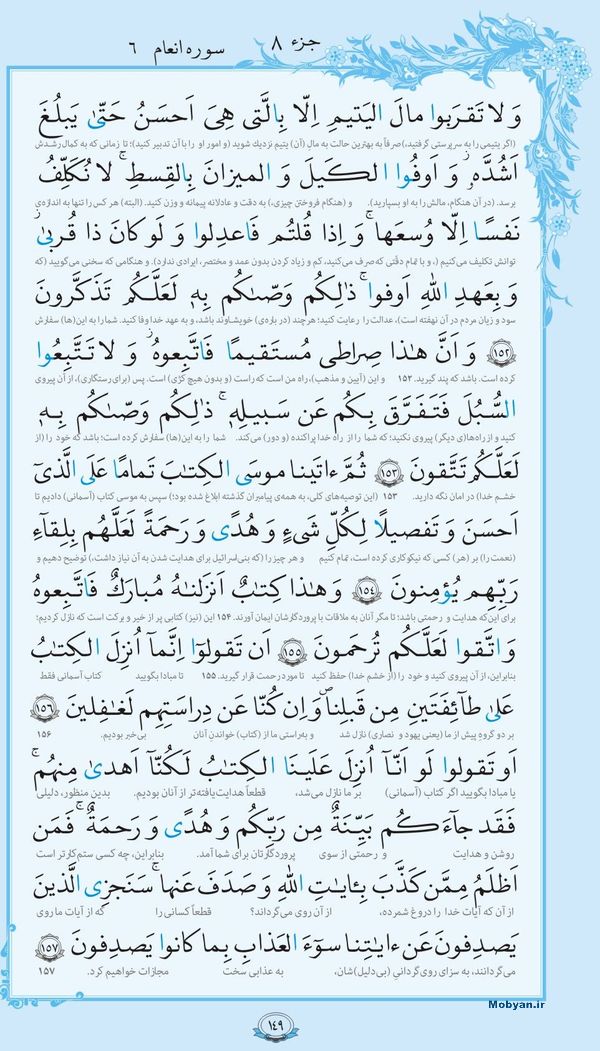 جزء ۸
سوره انعام ۶
وَ لا تَقرَبوا مالَ اليَتيمِ اِلّا بِالَّتى هِىَ اَحسَنُ حَتّى يَبلُغَ
(اگر یتیمی را به سرپرستی گرفتید،) صرفاً به بهترین حالت به مال (آن) یتیم نزدیك شوید (و امور او را با آن تدبیر کنید)؛ تا زمانی که به کمال رشدش
اَشُدَّهُ وَ اَوفُوا الكَيلَ وَ الميزانَ بِالقِسطِ ۚ لا نُكَلِّفُ
برسد. (در آن هنگام، مالش را به او بسپارید). و (هنگام فروختن چیزی،) به دقت و عادلانه پیمانه و وزن کنید. (البته) هر کس را تنها به اندازه‌ی
نَفسًا اِلّا وُسعَها ۚ وَ اِذا قُلتُم فَاعدِلوا وَ لَو كانَ ذا قُربىٰ
توانش تکلیف می‌کنیم (، و با تمام دقّتی که صرف می‌کنید، کم و زیاد کردن بدون عمد و مختصر، ایرادی ندارد). و هنگامی که سخنی می‌گویید (که
وَ بِعَهدِ اللهِ اَوفوا ۚ ذٰلِكُم وَصّٰىكُم بِهٖ لَعَلَّكُم تَذَكَّرونَ
سود و زیان مردم در آن نهفته است)، عدالت را رعایت کنید؛ هرچند (درباره‌ی) خویشاوند باشد، و به عهد خدا وفا کنید. شما را به این(ها) سفارش
﴿١٥٢﴾ وَ اَنَّ هٰذا صِراطى مُستَقيمًا فَاتَّبِعوهُ ۖ وَ لا تَتَّبِعُوا
کرده است. باشد که پند گیرید. ۱۵۲ و این (آیین و مذهب)، راه من است که راست (و بدون هیچ کژی) است. پس (برای رستگاری)، از آن پیروی
السُّبُلَ فَتَفَرَّقَ بِكُم عَن سَبيلِهٖ ۚ ذٰلِكُم وَصّٰىكُم بِهٖ
کنید و از راه‌ها(ی دیگر) پیروی نکنید؛ که شما را از راه خدا پراکنده (و دور) می‌کند. شما را به این(ها) سفارش کرده است؛ باشد که خود را (از
لَعَلَّكُم تَتَّقونَ ﴿١٥٣﴾ ثُمَّ ءاتَينا موسَى الكِتٰبَ تَمامًا عَلَى الَّذىٓ
خشم خدا) در امان نگه دارید. ۱۵۳ (این توصیه‌های کلی، به همه‌ی پیامبران گذشته ابلاغ شده بود؛) سپس به موسی کتاب (آسمانی) دادیم تا
اَحسَنَ وَ تَفصيلًا لِكُلِّ شَىءٍ وَ هُدًى وَ رَحمَةً لَعَلَّهُم بِلِقآءِ
(نعمت را) بر (هر) کسی که نیکوکاری کرده است، تمام کنیم و هر چیز را (که بنی‌اسرائیل برای هدایت شدن به آن نیاز داشت،) توضیح دهیم و
رَبِّهِم يُؤمِنونَ ﴿١٥٤﴾ وَ هٰذا كِتٰبٌ اَنزَلنٰهُ مُبارَكٌ فَاتَّبِعوهُ
برای این‌که هدایت و رحمتی باشد؛ تا مگر آنان به ملاقات با پروردگارشان ایمان آورند. ۱۵۴ این (نیز) کتابی پر از خیر و برکت است که نازل کردیم؛
وَ اتَّقوا لَعَلَّكُم تُرحَمونَ ﴿١٥٥﴾ اَن تَقولوٓا اِنَّمآ اُنزِلَ الكِتٰبُ
بنابراین، از آن پیروی کنید و خود را (از خشم خدا) حفظ کنید تا مورد رحمت قرار گیرید. ۱۵۵ تا مبادا بگویید کتاب آسمانی فقط
عَلىٰ طآئِفَتَينِ مِن قَبلِنا وَ اِن كُنّا عَن دِراسَتِهِم لَغٰفِلينَ ﴿١٥٦﴾
بر دو گروهِ پیش از ما (یعنی یهود و نصاری) نازل شد و به‌راستی ما از (کتاب) خواندنِ آنان بی‌خبر بودیم. ۱۵۶
اَو تَقولوا لَو اَنّآ اُنزِلَ عَلَينَا الكِتٰبُ لَكُنّآ اَهدىٰ مِنهُم ۚ
یا مبادا بگویید اگر کتاب (آسمانی) بر ما نازل می‌شد، قطعاً هدایت‌یافته‌تر از آنان بودیم. بدین منظور، دلیلی
فَقَد جآءَكُم بَيِّنَةٌ مِن رَبِّكُم وَ هُدًى وَ رَحمَةٌ ۚ فَمَن
روشن و هدایت و رحمتی از سوی پروردگارتان برای شما آمد. بنابراین، چه کسی ستم‌کارتر است
اَظلَمُ مِمَّن كَذَّبَ بِـٔايٰتِ اللهِ وَ صَدَفَ عَنها ۗ سَنَجزِى الَّذينَ
از آن که آیات خدا را دروغ شمرده، از آن روی می‌گرداند؟ قطعاً کسانی را که از آیات ما روی
يَصدِفونَ عَن ءايٰتِنا سوٓءَ العَذابِ بِما كانوا يَصدِفونَ ﴿١٥٧﴾
می‌گردانند، به سزای روی‌گردانیِ (بی‌دلیل)شان، به عذابی سخت مجازات خواهیم کرد. ۱۵۷
۱۴۹
Mobyan.ir